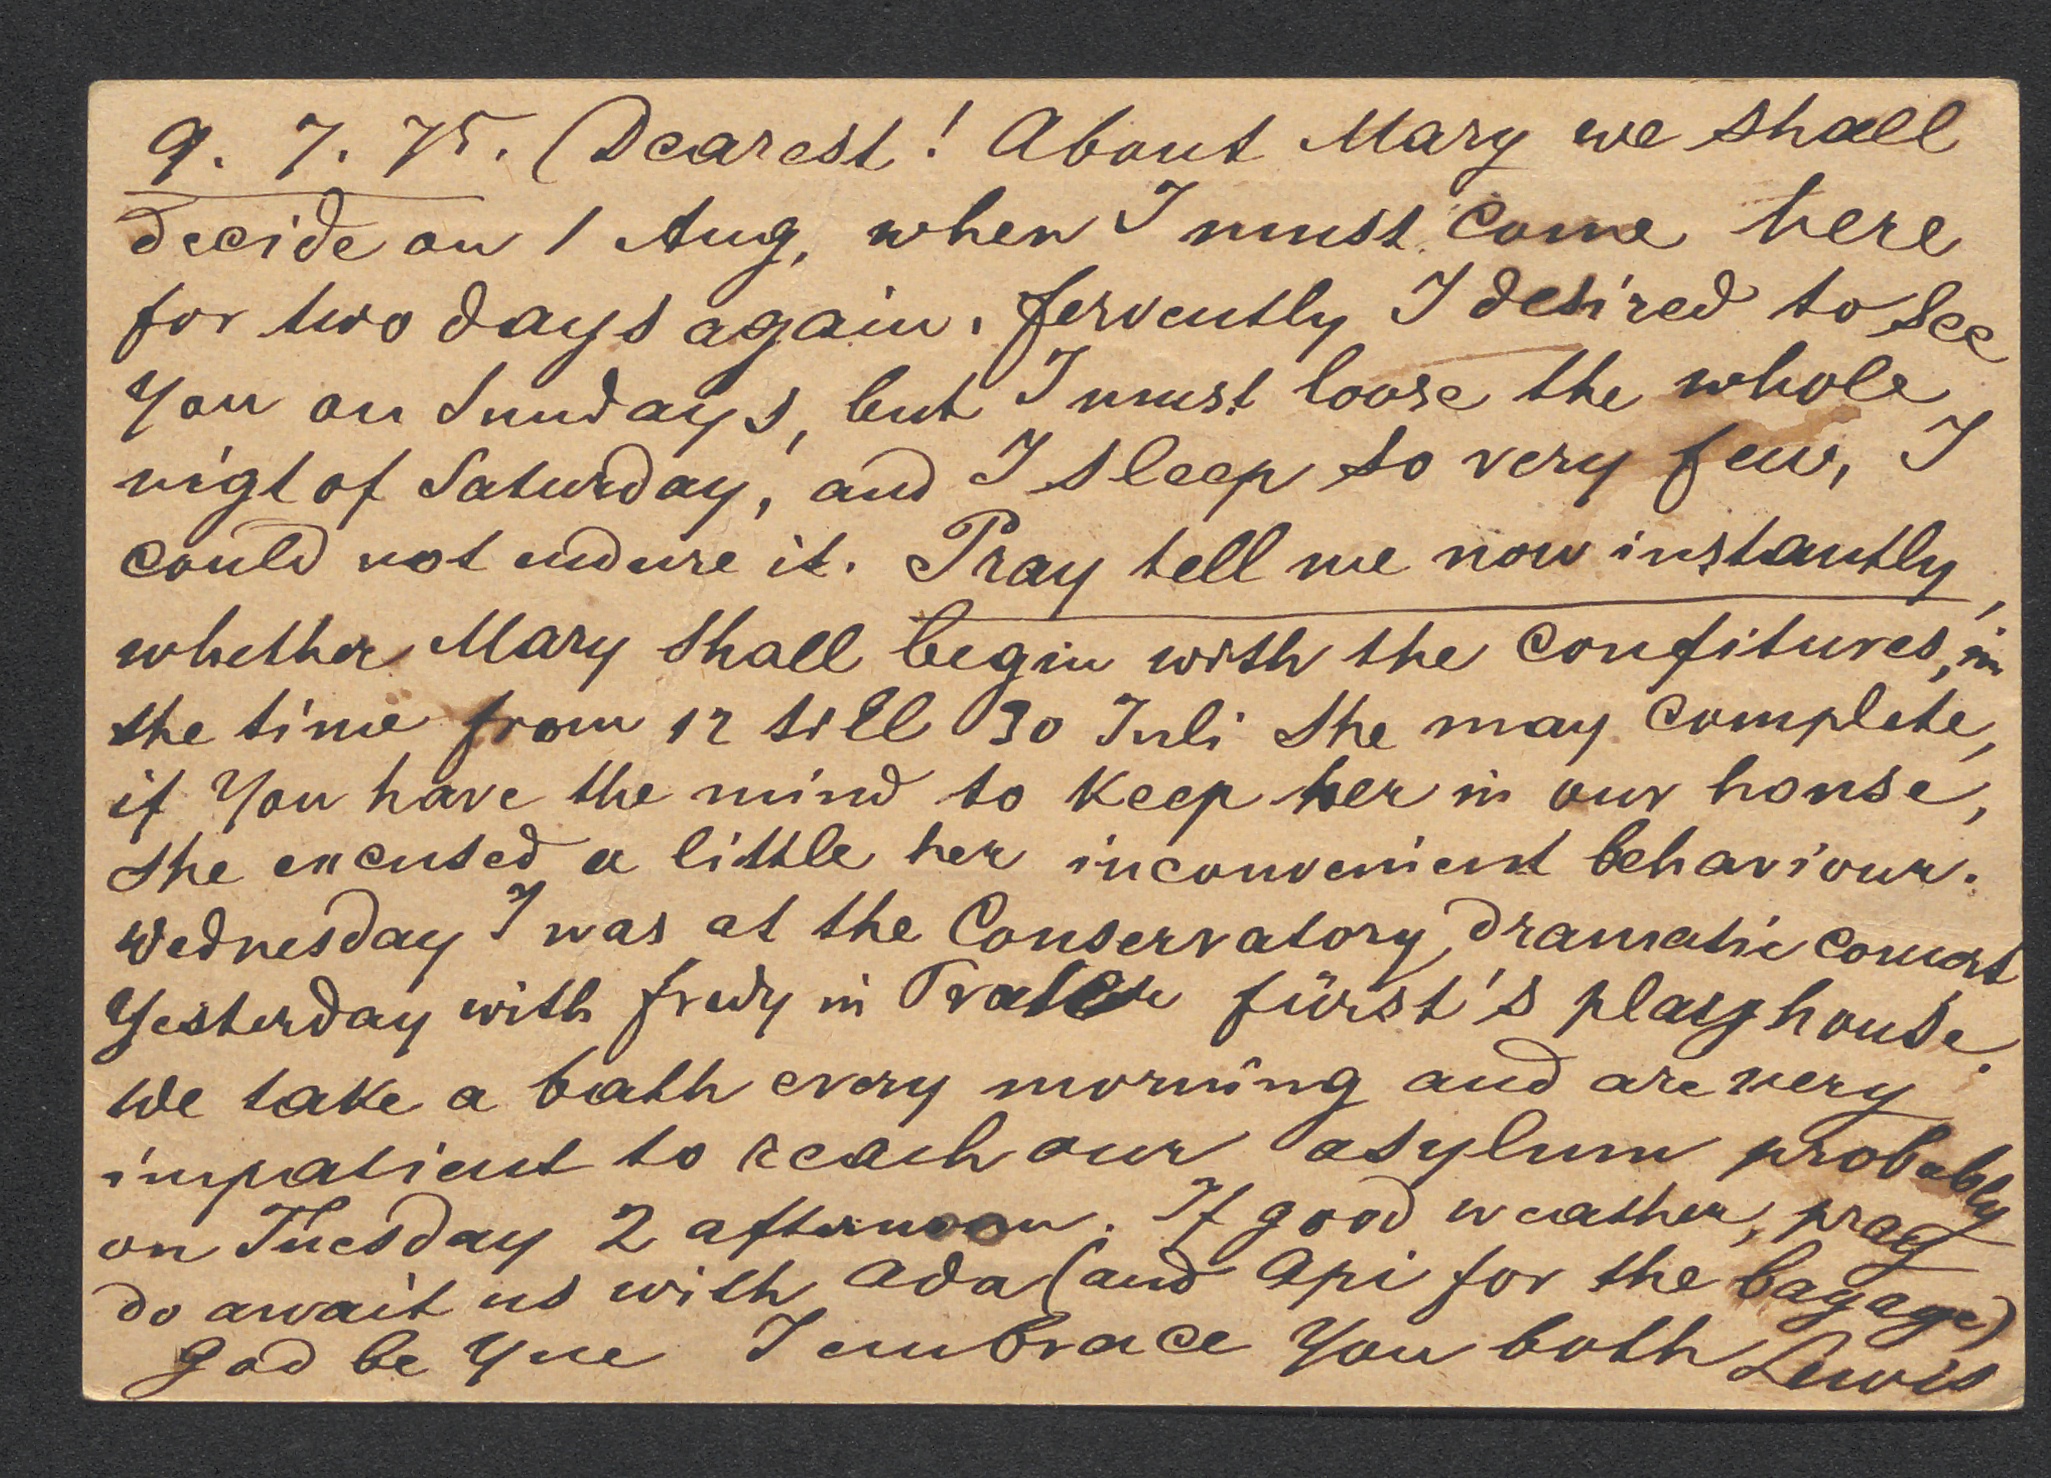 9. 7. 75. Dearest! About Mary we shall
decide on 1 Aug, when I must come here
for two days again. fervently I desired to see
You on Sunday's, but I must loose the whole
nigt of Saturday, and I sleep so very few, I
could not endure it. Pray tell me now instantly,
whether Mary shall begin with the confitures, in
the time from 12 till 30 Juli she may complete,
if You have the mind to keep her in our house,
she excused a little her inconvenient behaviour.
Wednesday I was at the Conservatory, dramatic
Yesterday with fredy in Prater fürst's playhouse.
We take a bath every morning and are very
impatient to reach our asylum probably
on Tuesday 2 afternoon. If good weather, pray
do await us with Ada (and Api for the bagage)
God be I embrace You both Lewis